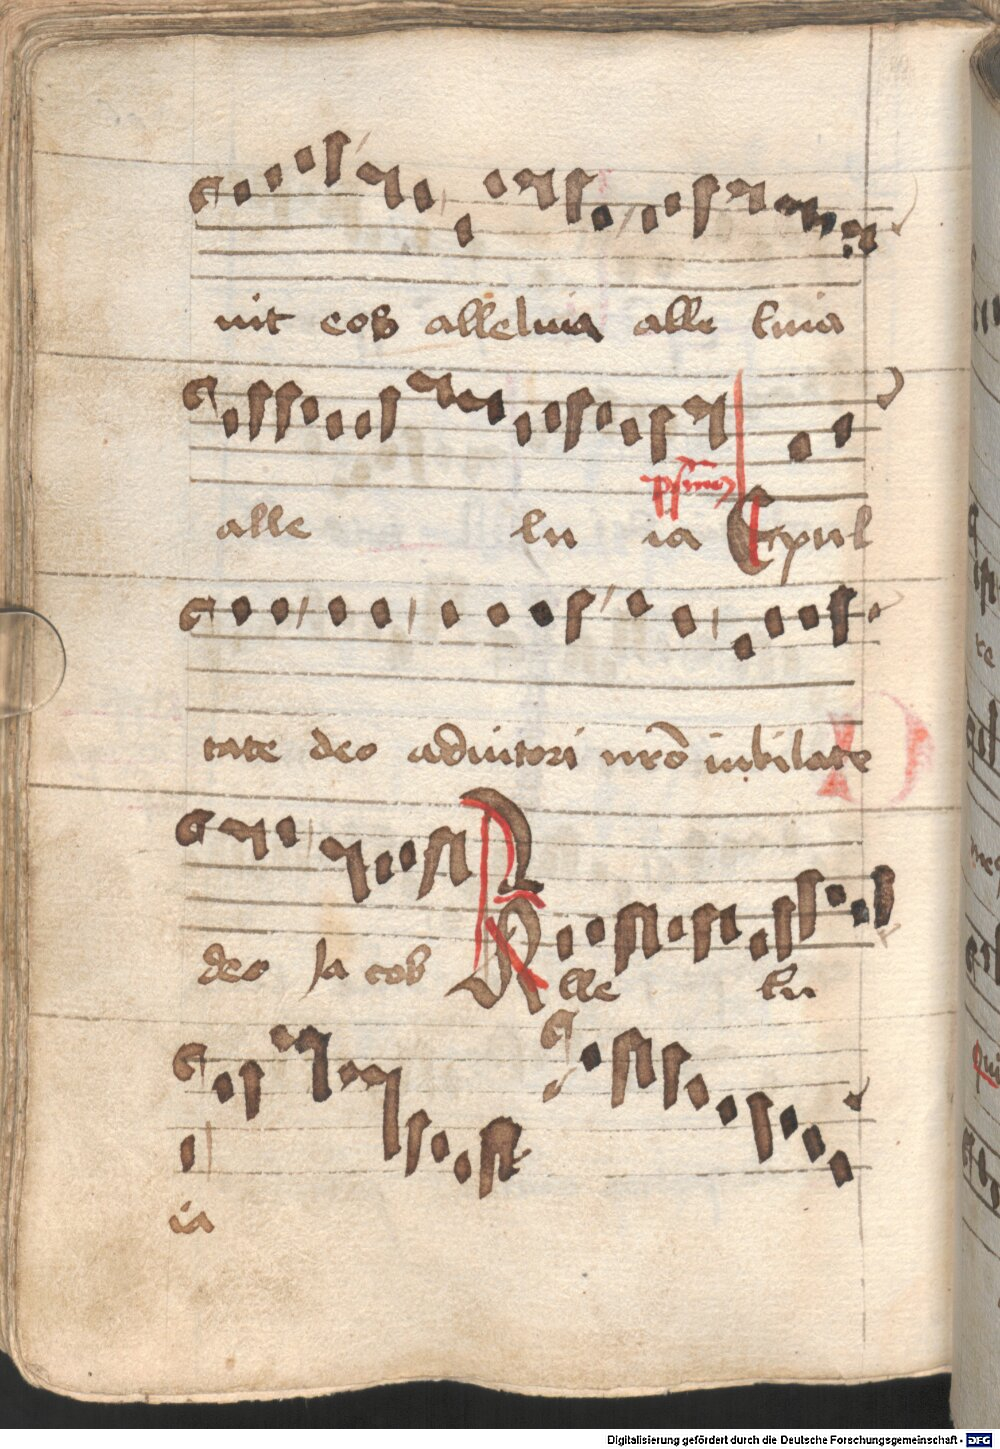 uit eos alleluia alle luia
alle lu ia Expul
psmus
tate deo adiutori nr̄o iubilate
deo Ja cob Alle lu
ia
Digitalisierung gefördert durch die Deutsche Forschungsgemeinschaft - DFG